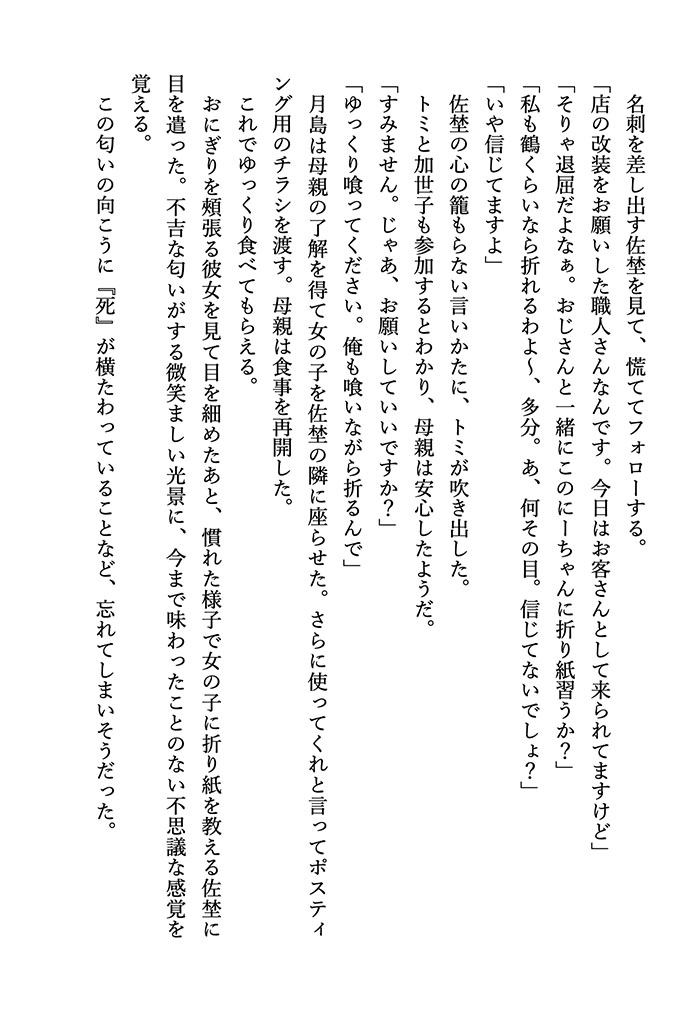 名刺を差し出す佐埜を見て、慌ててフォローする。
「店の改装をお願いした職人さんなんです。今日はお客さんとして来られてますけど」
「そりゃ退屈だよなぁ。おじさんと一緒にこのにーちゃんに折り紙習うか？」
「私も鶴くらいなら折れるわよ～、多分。あ、何その目。信じてないでしょ？」
「いや信じてますよ」
佐埜の心の籠もらない言いかたに、トミが吹き出した。
トミと加世子も参加するとわかり、母親は安心したようだ。
「すみません。じゃあ、お願いしていいですか？」
「ゆっくり喰ってください。俺も喰いながら折るんで」
月島は母親の了解を得て女の子を佐埜の隣に座らせた。さらに使ってくれと言ってポスティ
ング用のチラシを渡す。母親は食事を再開した。
これでゆっくり食べてもらえる。
おにぎりを頬張る彼女を見て目を細めたあと、慣れた様子で女の子に折り紙を教える佐埜に
目を遣った。不吉な匂いがする微笑ましい光景に、今まで味わったことのない不思議な感覚を
覚える。
この匂いの向こうに『死』が横たわっていることなど、忘れてしまいそうだった。